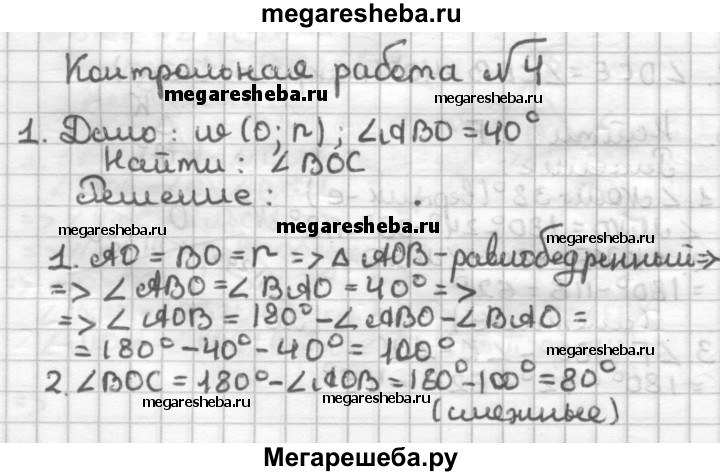 megaresheba.ru
Контрольная работа №4
megaresheba.ru
megaresheba.ru
1. Дано: w(O; r); ∠ABO = 40°
Найти: ∠BOC
Решение:
megaresheba.ru
megaresheba.ru
1. AO = BO = r => △ AOB - равнобедренный =>
=> ∠ABO = ∠BAO = 40° =>
=> ∠AOB = 180° - ∠ABO - ∠BAO =
= 180° - 40° - 40° = 100°
megaresheba.ru
2. ∠BOC = 180° - ∠AOB = 180° - 100° = 80°
megaresheba.ru
megaresheba.ru
(смежные)
Мегарешеба.ру